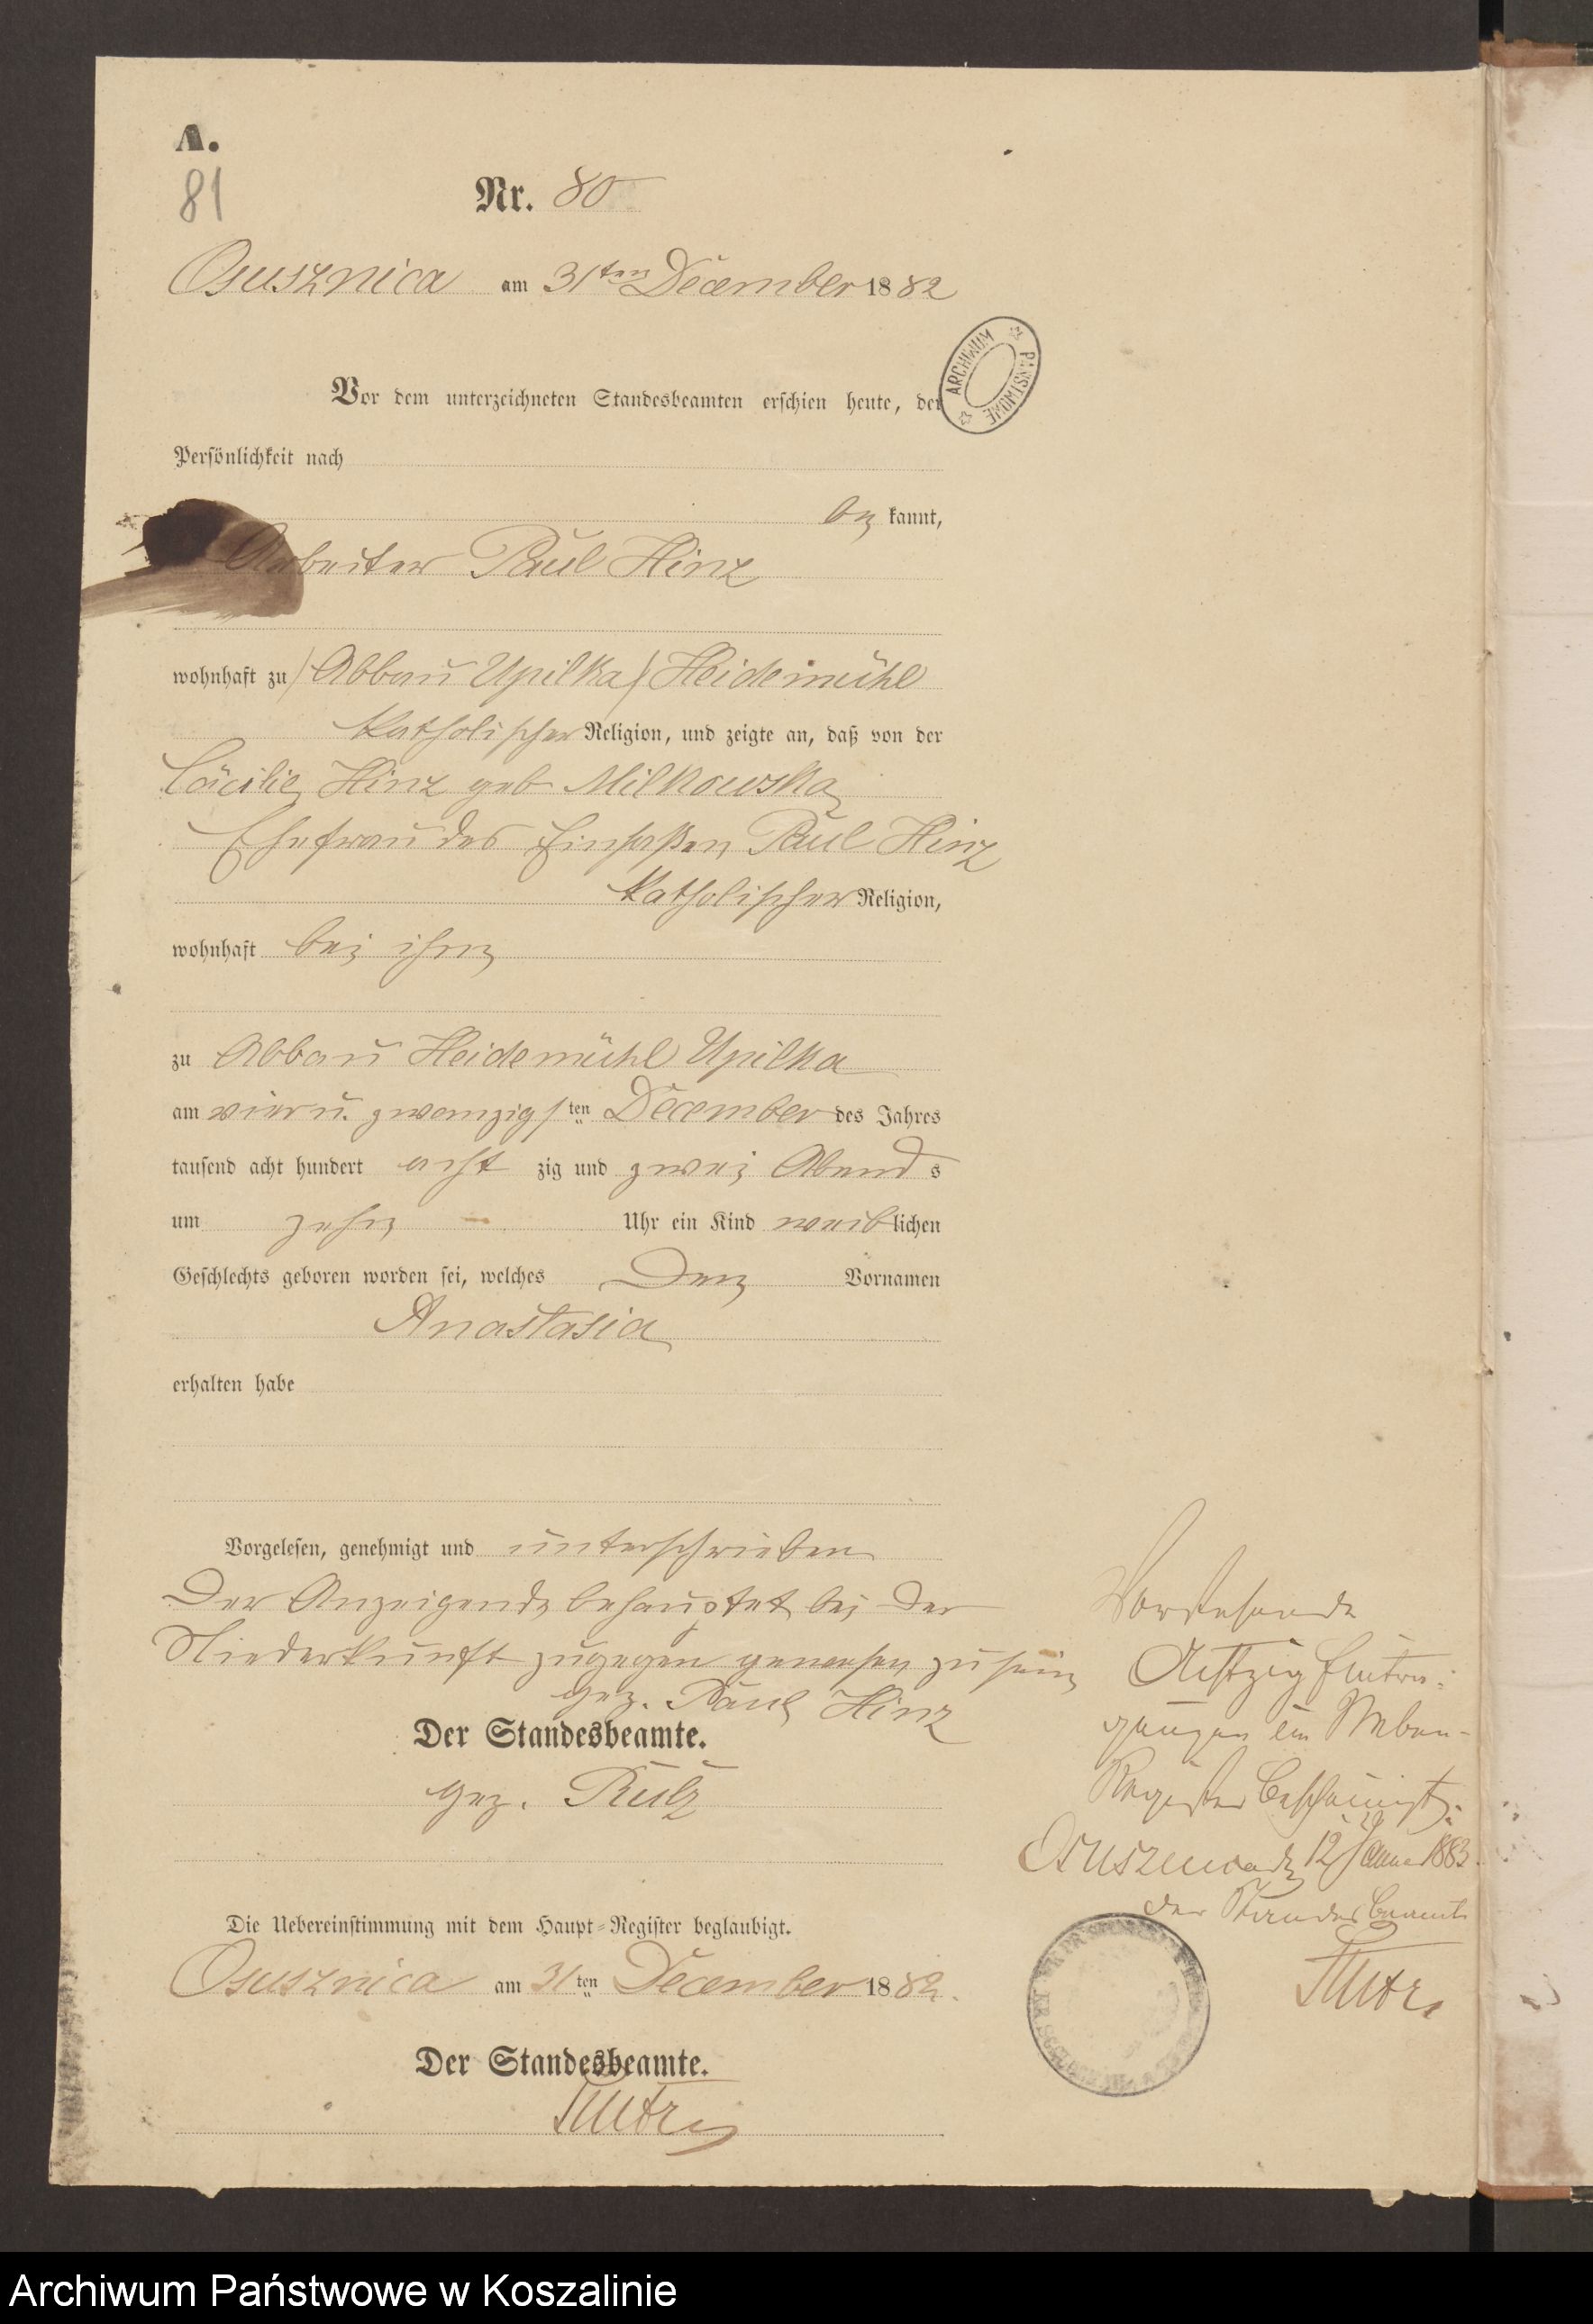 A.
81
Nr. 80
Osusznica am 31ten December 1882
ARCHIWUM PAŃSTWOWE
Vor dem unterzeichneten Standesbeamten erschien heute, der
Persönlichkeit nach
be kannt,
Arbeiter Paul Hinz
wohnhaft zu (Abbau Upilka) Heidemühl
katholischer Religion, und zeigte an, daß von der
Cäcilie Hinz geb Milkowska
Ehefrau des Einsaßen Paul Hinz
katholischer Religion,
wohnhaft bei ihm
zu Abbau Heidemühl Upilka
am vier u. zwanzigsten December des Jahres
tausend acht hundert acht zig und zwei Abends
um zehn Uhr ein Kind weiblichen
Geschlechts geboren worden sei, welches den Vornamen
Anastasia
erhalten habe
Vorgelesen, genehmigt und unterschrieben
Der Anzeigende behauptet bei der
Niederkunft zugegen gewesen zu sein
gez. Paul Hinz
Der Standesbeamte.
gez.
Die Uebereinstimmung mit dem Haupt-Register beglaubigt.
Osusznica am 31ten December 1882.
Der Standesbeamte.
Vorstehende
Achtzig Eintra-
gungen im Neben-
Register bescheinigt:
12 Januar 1883.
der Standesbeamte
Archiwum Państwowe w Koszalinie